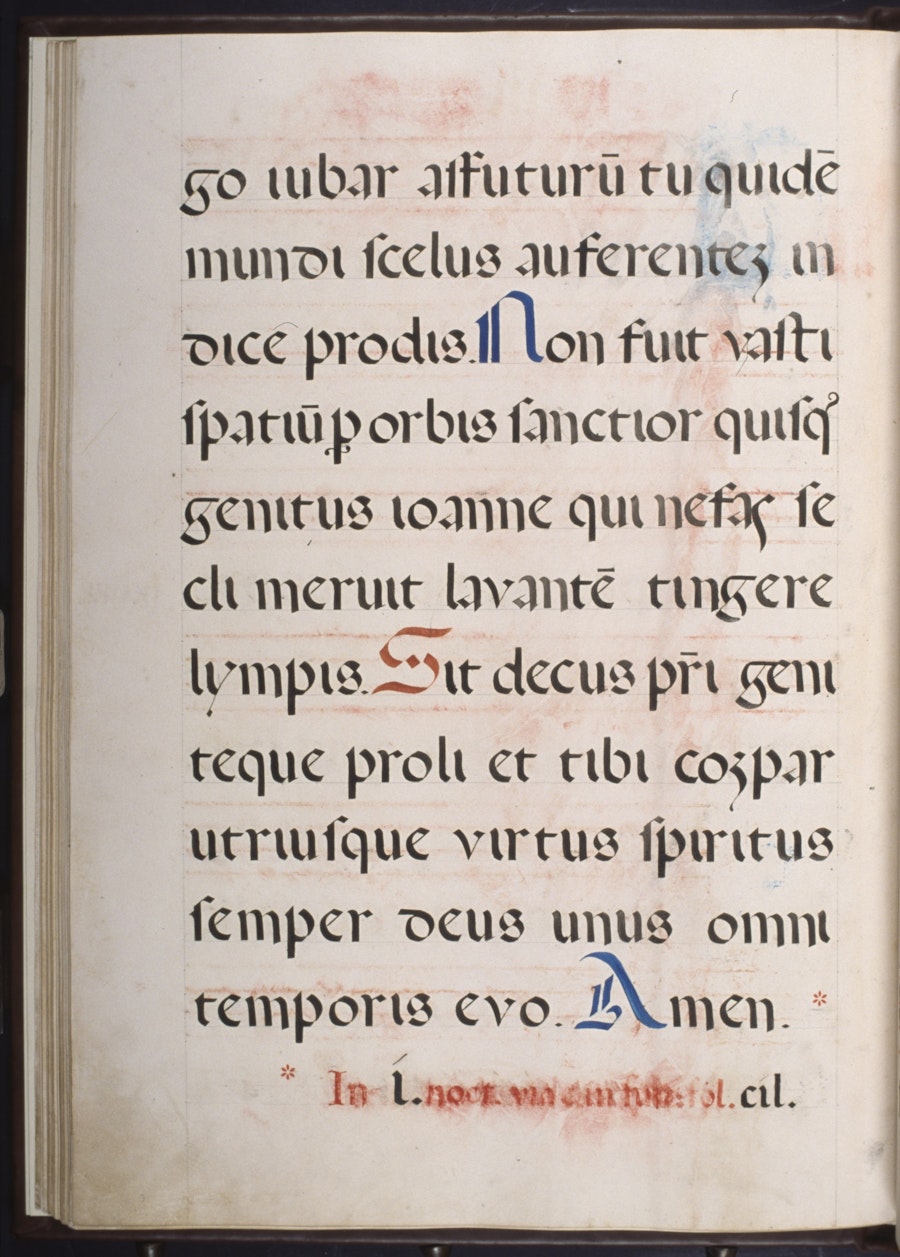 go iubar affuturū tu quidē
mundi scelus auferenteʒ in
dicē prodis. Non fuit vasti
spatiū ꝑ orbis sanctior quisꝗ
genitus ioanne qui nefas se
cli meruit lavantē tingere
lympis. Sit decus pr̄i geni
teque proli et tibi coʒpar
utriusque virtus spiritus
semper deus unus omni
temporis evo. Amen. *
* In í. noct. fol. cil.